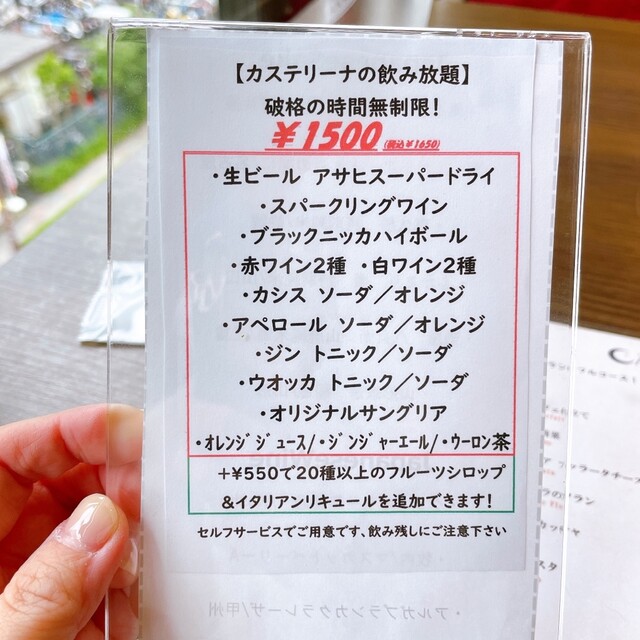 【カステリーナの飲み放題】
破格の時間無制限!
¥1500 (税込¥1650)
・生ビール アサヒスーパードライ
・スパークリングワイン
・ブラックニッカハイボール
・赤ワイン2種 ・白ワイン2種
・カシス ソーダ／オレンジ
・アペロール ソーダ／オレンジ
・ジン トニック／ソーダ
・ウオッカ トニック／ソーダ
・オリジナルサングリア
・オレンジジュース/・ジンジャーエール/・ウーロン茶
+¥550で20種以上のフルーツシロップ
&イタリアンリキュールを追加できます!
セルフサービスでご用意です、飲み残しにご注意下さい